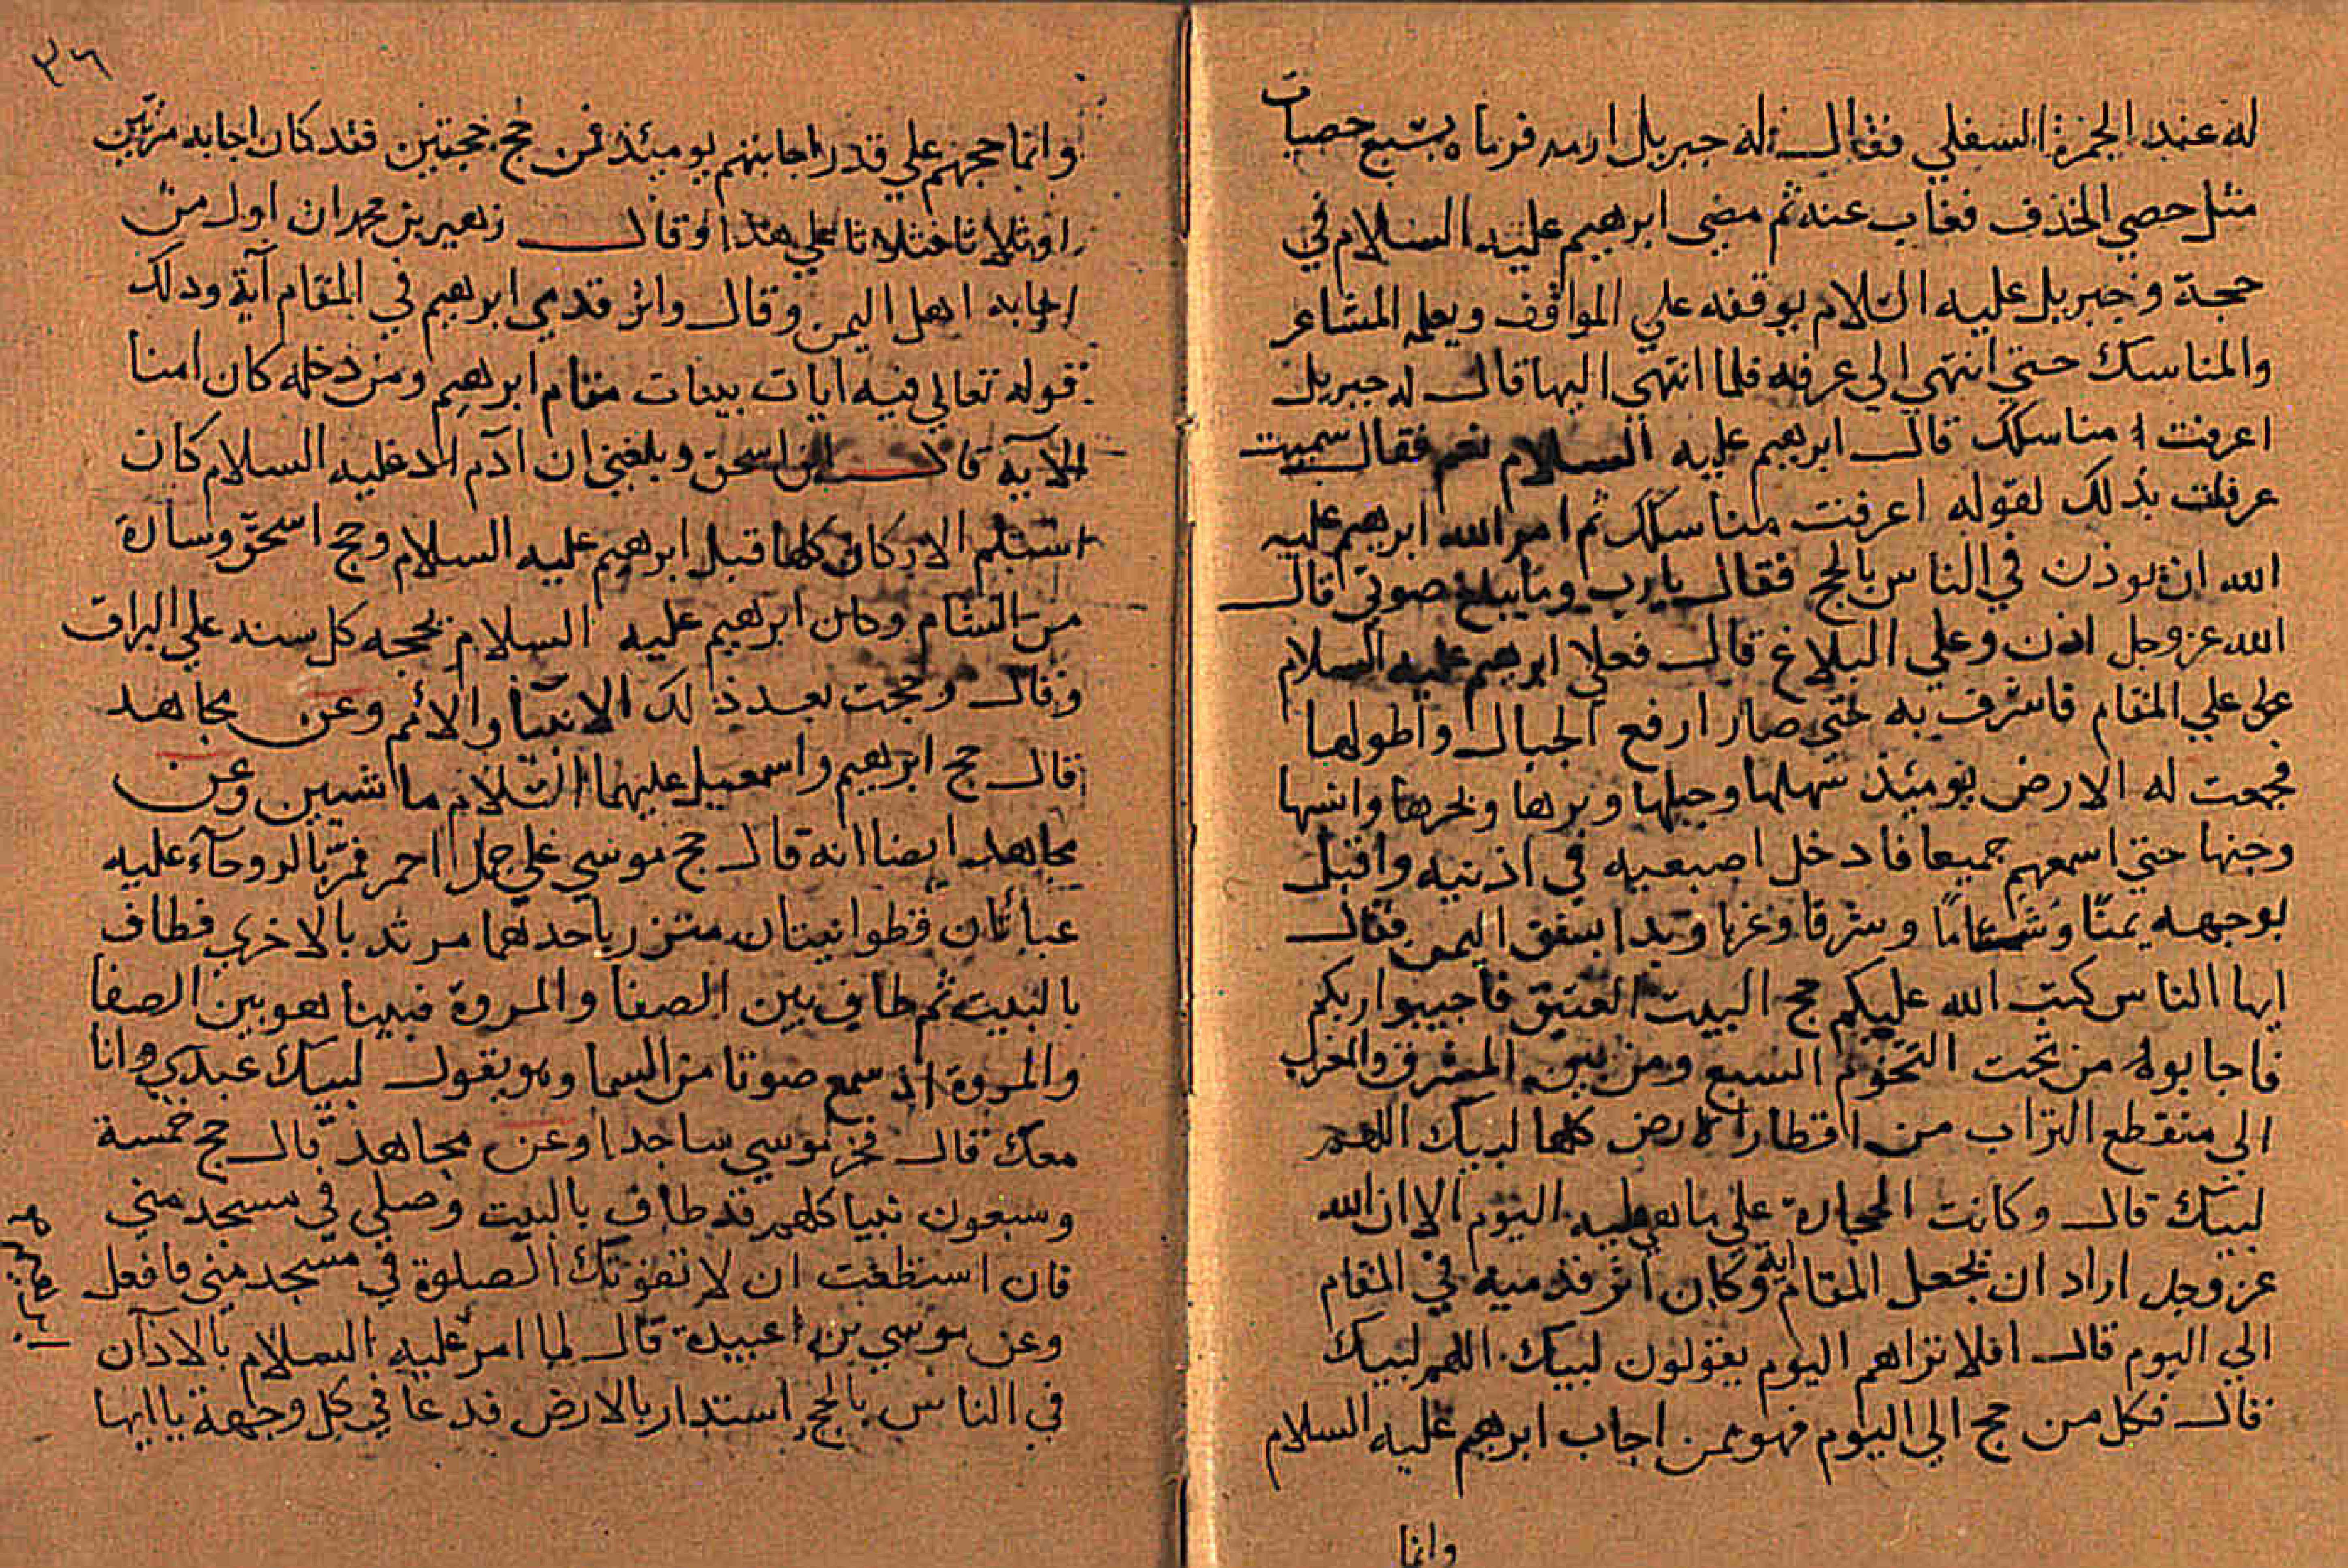 له عند الجمرة السفلي فقال له جبريل ارمه فرماه بسبع حصيات
مثل حصي الخذف فغاب عنه ثم مضي ابرهيم عليه السلام في
حجة وجبريل عليه السلام يوقفه علي المواقف ويعلمه المشاعر
والمناسك حتي انتهي الي عرفه فلما انتهي اليها قال له جبريل
اعرفت مناسكك قال ابرهيم عليه السلام نعم فقال سميت
عرفات بذلك لقوله اعرفت مناسكك ثم امر الله ابرهيم عليه
الله ان يوذن في الناس بالحج فقال يا رب وما يبلغ صوتي قال
الله عز وجل اذن وعلي البلاغ قال فعلا ابرهيم عليه السلام
علي المقام فاشرف به حتي صار ارفع الجبال واطولها
فجمعت له الارض يومئذ سهلها وجبلها وبرها وبحرها وانسها
وجنها حتي اسمعهم جميعا فادخل اصبعيه في اذنيه واقبل
بوجهه يمنًا وشاما وشرقا وغربا وبدا بشق اليمن فقال
ايها الناس كتب الله عليكم حج البيت العتيق فاجيبوا ربكم
فاجابوه من تحت التخوم السبع ومن بين المشرق والمغرب
الي منقطع التراب من اقطار الارض كلها لبيك اللهم
لبيك قال وكانت الحجارة علي ما هي عليه اليوم الا ان الله
عز وجل اراد ان يجعل المقام اية وكان اثر قدميه في المقام
الي اليوم قال افلا تراهم اليوم يقولون لبيك اللهم لبيك
قال فكل من حج الي اليوم فهو ممن اجاب ابرهيم عليه السلام
وانما
٣٦
وانما حجهم علي قدر اجابتهم يومئذ فمن حج حجتين فقد كان اجابه مرتين
او ثلاثا فثلاثا علي هذا وقال زهير بن محمد ان اول من
اجابه اهل اليمن وقال واثر قدمي ابرهيم في المقام آية وذلك
قوله تعالي فيه ايات بينات مقام ابرهيم ومن دخله كان امنا
الآية قال ابن اسحق وبلغني ان آدم عليه السلام كان
استلم الاركان كلها قبل ابرهيم عليه السلام وحج اسحق وسارة
من الشام وكان ابرهيم عليه السلام يحجه كل سنه علي البراق
وقال وحجت بعد ذلك الانبيا والأمم وعن مجاهد
قال حج ابرهيم واسمعيل عليهما السلام ماشيين وعن
مجاهد ايضا انه قال حج موسي علي جمل احمر فمر بالروحآء عليه
عبائتان قطوانيتان متزر باحدهما مرتد بالاخري فطاف
بالبيت ثم طاف بين الصفا والمروة فبينا هو بين الصفا
والمروة اذ سمع صوتا من السما وهو يقول لبيك عبدي وانا
معك قال فخر موسي ساجدا وعن مجاهد قال حج خمسة
وسبعون نبيا كلهم قد طاف بالبيت وصلي في مسجد مني
فان استطعت ان لا تفوتك الصلوة في مسجد مني فافعل
وعن موسي بن عبيدة قال لما امر عليه السلام بالاذان
في الناس بالحج استدار بالارض فدعا في كل وجهة يا ايها